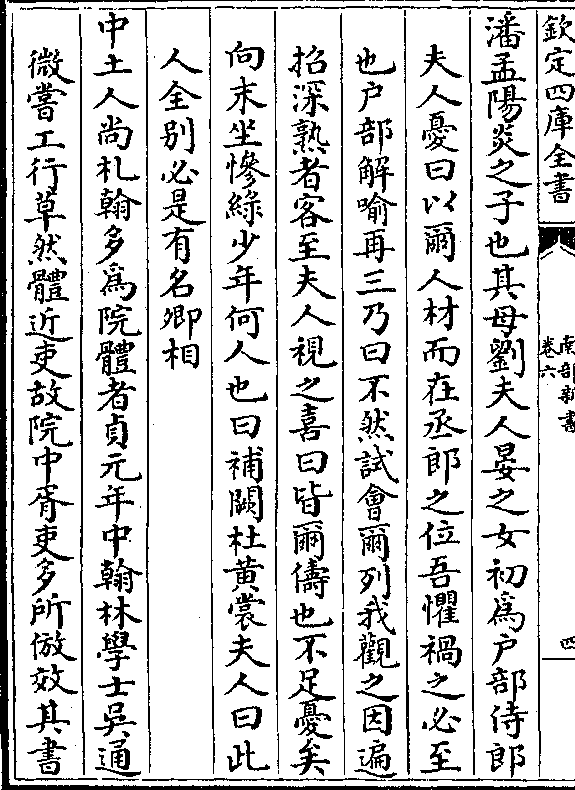 欽定四庫全書
南部新書
卷六
四
潘孟陽炎之子也其母劉夫人晏之女初為戶部侍郎
夫人憂曰以爾人材而在丞郎之位吾懼禍之必至
也戶部解喻再三乃曰不然試會爾列我觀之因遍
招深熟者客至夫人視之喜曰皆爾儔也不足憂矣
向末坐慘綠少年何人也曰補闕杜黃裳夫人曰此
人全别必是有名卿相
中土人尚札翰多為院體者貞元年中翰林學士吳通
微嘗工行草然體近吏故院中胥吏多所倣效其書